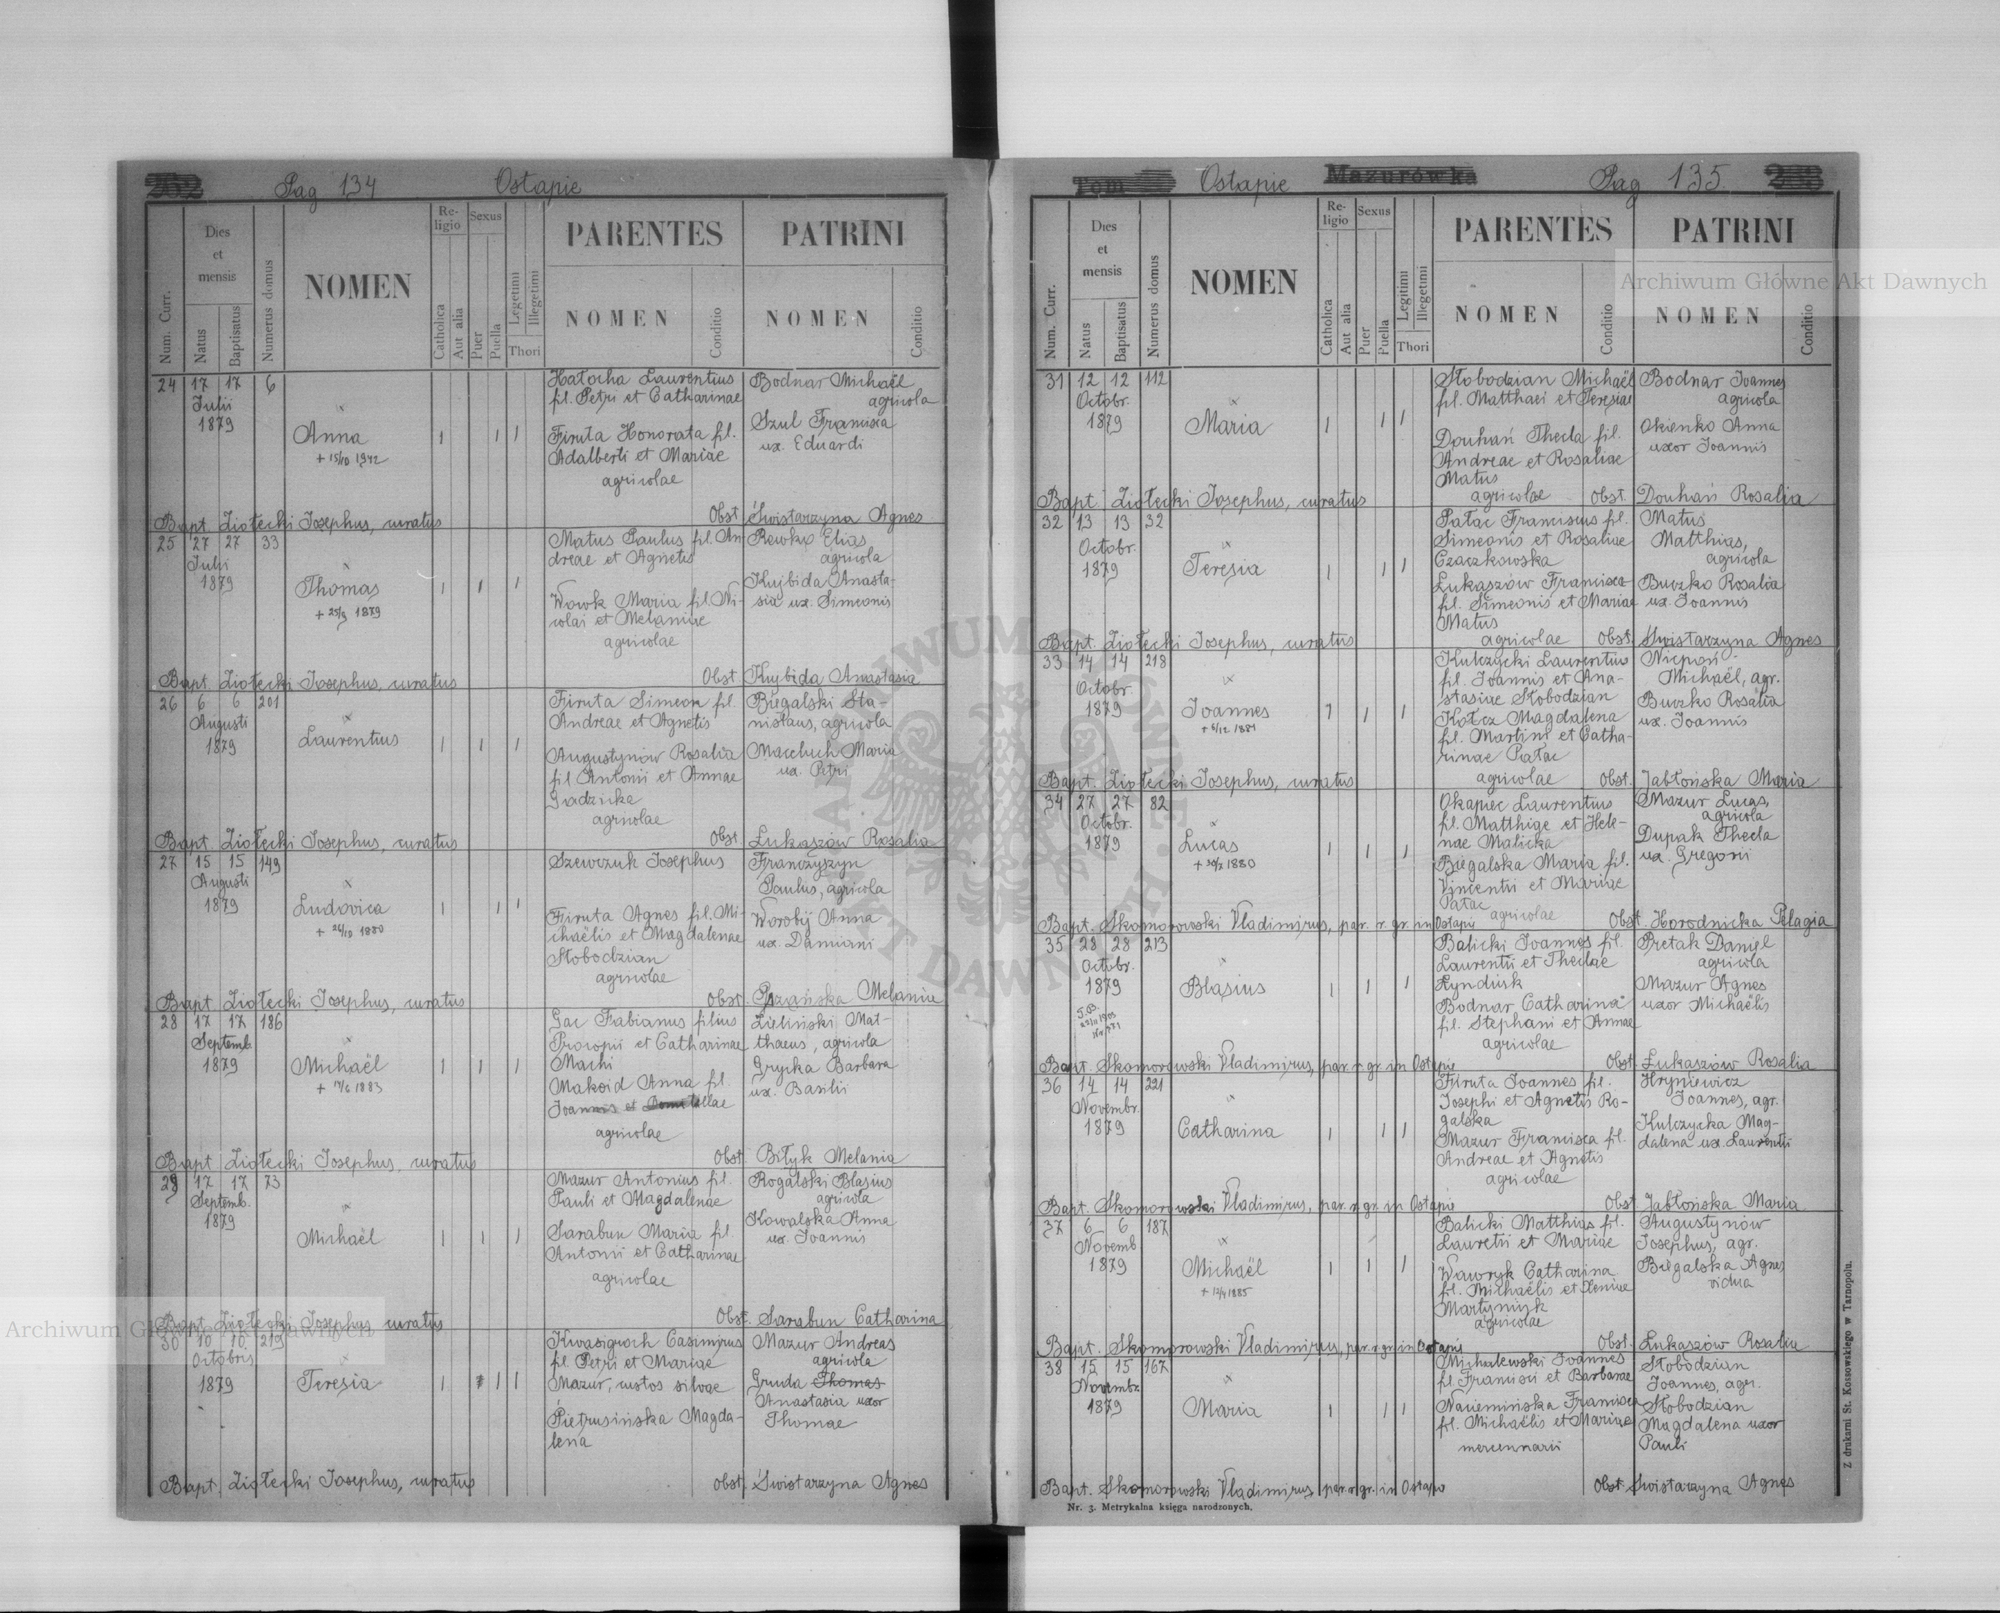 Pag 134 Ostapie
Num. Curr.
Dies et mensis
Natus
Baptisatus
Numerus domus
NOMEN
Religio
Catholica
Aut alia
Sexus
Puer
Puella
Legetimi
Illegetimi
Thori
PARENTES
NOMEN
Conditio
PATRINI
NOMEN
Conditio
24 17 17 6
Julii
1879
Anna
+ 15/10 1942
Hałocha Laurentius
fil. Petri et Catharinae
Firuta Honorata fil.
Adalberti et Mariae
agricolae
Bodnar Michaël
agricola
Szul Francisca
ux. Eduardi
Bapt. Ziołecki Josephus, curatus Obst. Świstarzyna Agnes
25 27 27 33
Julii
1879
Thomas
Matus Paulus fil. An
dreae et Agnetis
Wowk Maria fil. Ni-
colai et Melaniae
agricolae
Rewko Elias
agricola
Kujbida Anasta-
sia ux. Simeonis
Bapt. Ziołecki Josephus, curatus Obst. Kujbida Anastasia
26 6 6 201
Augusti
1879
Laurentius
Firuta Simeon fil.
Andreae et Agnetis
Augustynów Rosalia
fil Antonii et Annae
Gadzicka
agricolae
Biegalski Sta-
nislaus, agricola
Maceluch Maria
ux. Petri
Bapt. Ziołecki Josephus, curatus Obst. Łukaszów Rosalia
27 15 15 149
Augusti
1879
Ludovica
Szewczuk Josephus
Firuta Agnes fil. Mi-
chaëlis et Magdalenae
Słobodzian
agricolae
Franczyszyn
Paulus, agricola
Worobij Anna
ux. Damiani
Bapt. Ziołecki Josephus, curatus Obst. Melania
28 17 17 186
Septemb.
1879
Michaël
Gac Fabianus filius
Procopii et Catharinae
Machi
Makoid Anna fil.
Joannis et Domitillae
agricolae
Zieliński Mat-
thaeus, agricola
Grycka Barbara
ux. Basilii
Bapt. Ziołecki Josephus, curatus Obst. Biłyk Melania
29 17 17 73
Septemb.
1879
Michaël
Mazur Antonius fil.
Pauli et Magdalenae
Sarabun Maria fil.
Antonii et Catharinae
agricolae
Rogalski Blasius
agricola
Kowalska Anna
ux. Joannis
Bapt. Ziołecki Josephus, curatus Obst. Sarabun Catharina
30 10 10 219
Octobris
1879
Teresia
Kwasigroch Casimirus
fil. Petri et Mariae
Mazur, custos silvae
Pietrusińska Magda-
lena
Mazur Andreas
agricola
Gruda Thomas
Anastasia uxor
Thomae
Bapt. Ziołecki Josephus, curatus Obst. Świstarzyna Agnes
Tom Ostapie Mazurówka Pag 135
Num. Curr.
Dies et mensis
Natus
Baptisatus
Numerus domus
NOMEN
Religio
Catholica
Aut alia
Sexus
Puer
Puella
Legitimi
Illegetimi
Thori
PARENTES
NOMEN
Conditio
PATRINI
NOMEN
Conditio
31 12 12 112
Octobr.
1879
Maria
Słobodzian Michaël
fil. Matthaei et Teresiae
Douhań Thecla fil.
Andreae et Rosaliae
Matus
agricolae
Bodnar Joannes
agricola
Okienko Anna
uxor Joannis
Bapt. Ziołecki Josephus, curatus Obst. Douhań Rosalia
32 13 13 32
Octobr.
1879
Teresia
Pałac Franciscus fil.
Simeonis et Rosaliae
Czaczkowska
Łukaszów Francisca
fil. Simeonis et Mariae
Matus
agricolae
Matus
Matthias,
agricola
Buczko Rosalia
ux. Joannis
Bapt. Ziołecki Josephus, curatus Obst. Świstarzyna Agnes
33 14 14 218
Octobr.
1879
Joannes
Kulczycki Laurentius
fil. Joannis et Ana-
stasiae Słobodzian
Kołcz Magdalena
fil. Martini et Catha-
rinae Pałac
agricolae
Michaël, agr.
Buczko Rosalia
ux. Joannis
Bapt. Ziołecki Josephus, curatus Obst. Jabłońska Maria
34 27 27 82
Octobr.
1879
Lucas
Okapiec Laurentius
fil. Matthiae et Hele-
nae Malicka
Biegalska Maria fil.
Vincentii et Mariae
Pałac
agricolae
Mazur Lucas,
agricola
Dupak Thecla
ux. Gregorii
Bapt. Skomorowski Vladimirus, par. r. gr. in Ostapie Obst. Horodnicka Pelagia
35 28 28 213
Octobr.
1879
Blasius
Balicki Joannes fil.
Laurentii et Theclae
Kyndiuk
Bodnar Catharina
fil. Stephani et Annae
agricolae
Pretak Daniel
agricola
Mazur Agnes
uxor Michaëlis
Bapt. Skomorowski Vladimirus, par. r. gr. in Ostapie Obst. Łukaszów Rosalia
36 14 14 221
Novembr.
1879
Catharina
Firuta Joannes fil.
Josephi et Agnetis Ro-
galska
Mazur Francisca fil.
Andreae et Agnetis
agricolae
Hryniewicz
Joannes, agr.
Kulczycka Mag-
dalena ux. Laurentii
Bapt. Skomorowski Vladimirus, par. r. gr. in Ostapie Obst. Jabłońska Maria
37 6 6 187
Novemb
1879
Michaël
+ 12/4 1885
Balicki Matthias fil.
Lauretii et Mariae
Wawryk Catharina
fil. Michaëlis et Xeniae
Martyniuk
agricolae
Augustynów
Josephus, agr.
Biegalska Agnes
vidua
Bapt. Skomorowski Vladimirus, par. r. gr. in Ostapie Obst. Łukaszów Rosalia
38 15 15 167
Novembr.
1879
Maria
Michalewski Joannes
fil. Francisci et Barbarae
Francisca
fil. Michaëlis et Mariae
mercennarii
Słobodzian
Joannes, agr.
Słobodzian
Magdalena uxor
Pauli
Bapt. Skomorowski Vladimirus, par. r. gr. in Ostapie Obst. Świstarzyna Agnes
Nr. 3. Metrykalna księga narodzonych.
Z drukarni St. Kossowskiego w Tarnopolu.
Archiwum Główne Akt Dawnych
Archiwum Główne Akt Dawnych
ARCHIWUM GŁÓWNE AKT DAWNYCH